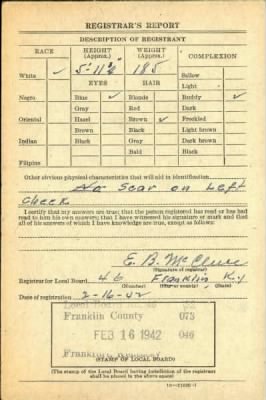 REGISTRAR'S REPORT
DESCRIPTION OF REGISTRANT
RACE HEIGHT (Approx.) WEIGHT (Approx.) COMPLEXION
White ✓ 5'-11½" 185 Sallow
EYES HAIR Light
Negro Blue ✓ Blonde Ruddy ✓
Gray Red Dark
Oriental Hazel Brown ✓ Freckled
Brown Black Light brown
Indian Black Gray Dark brown
Bald Black
Filipino
Other obvious physical characteristics that will aid in identification
Scar on Left
Cheek
I certify that my answers are true; that the person registered has read or has had
read to him his own answers; that I have witnessed his signature or mark and that
all of his answers of which I have knowledge are true, except as follows:
E. B. McClure
(Signature of registrar)
Registrar for Local Board 46 Franklin Ky
(Number) (City or county) (State)
Date of registration 2-16-42
Local Board
Franklin County 073
FEB 16 1942 046
Franklin
(STAMP OF LOCAL BOARD)
(The stamp of the Local Board having jurisdiction of the registrant
shall be placed in the above space)